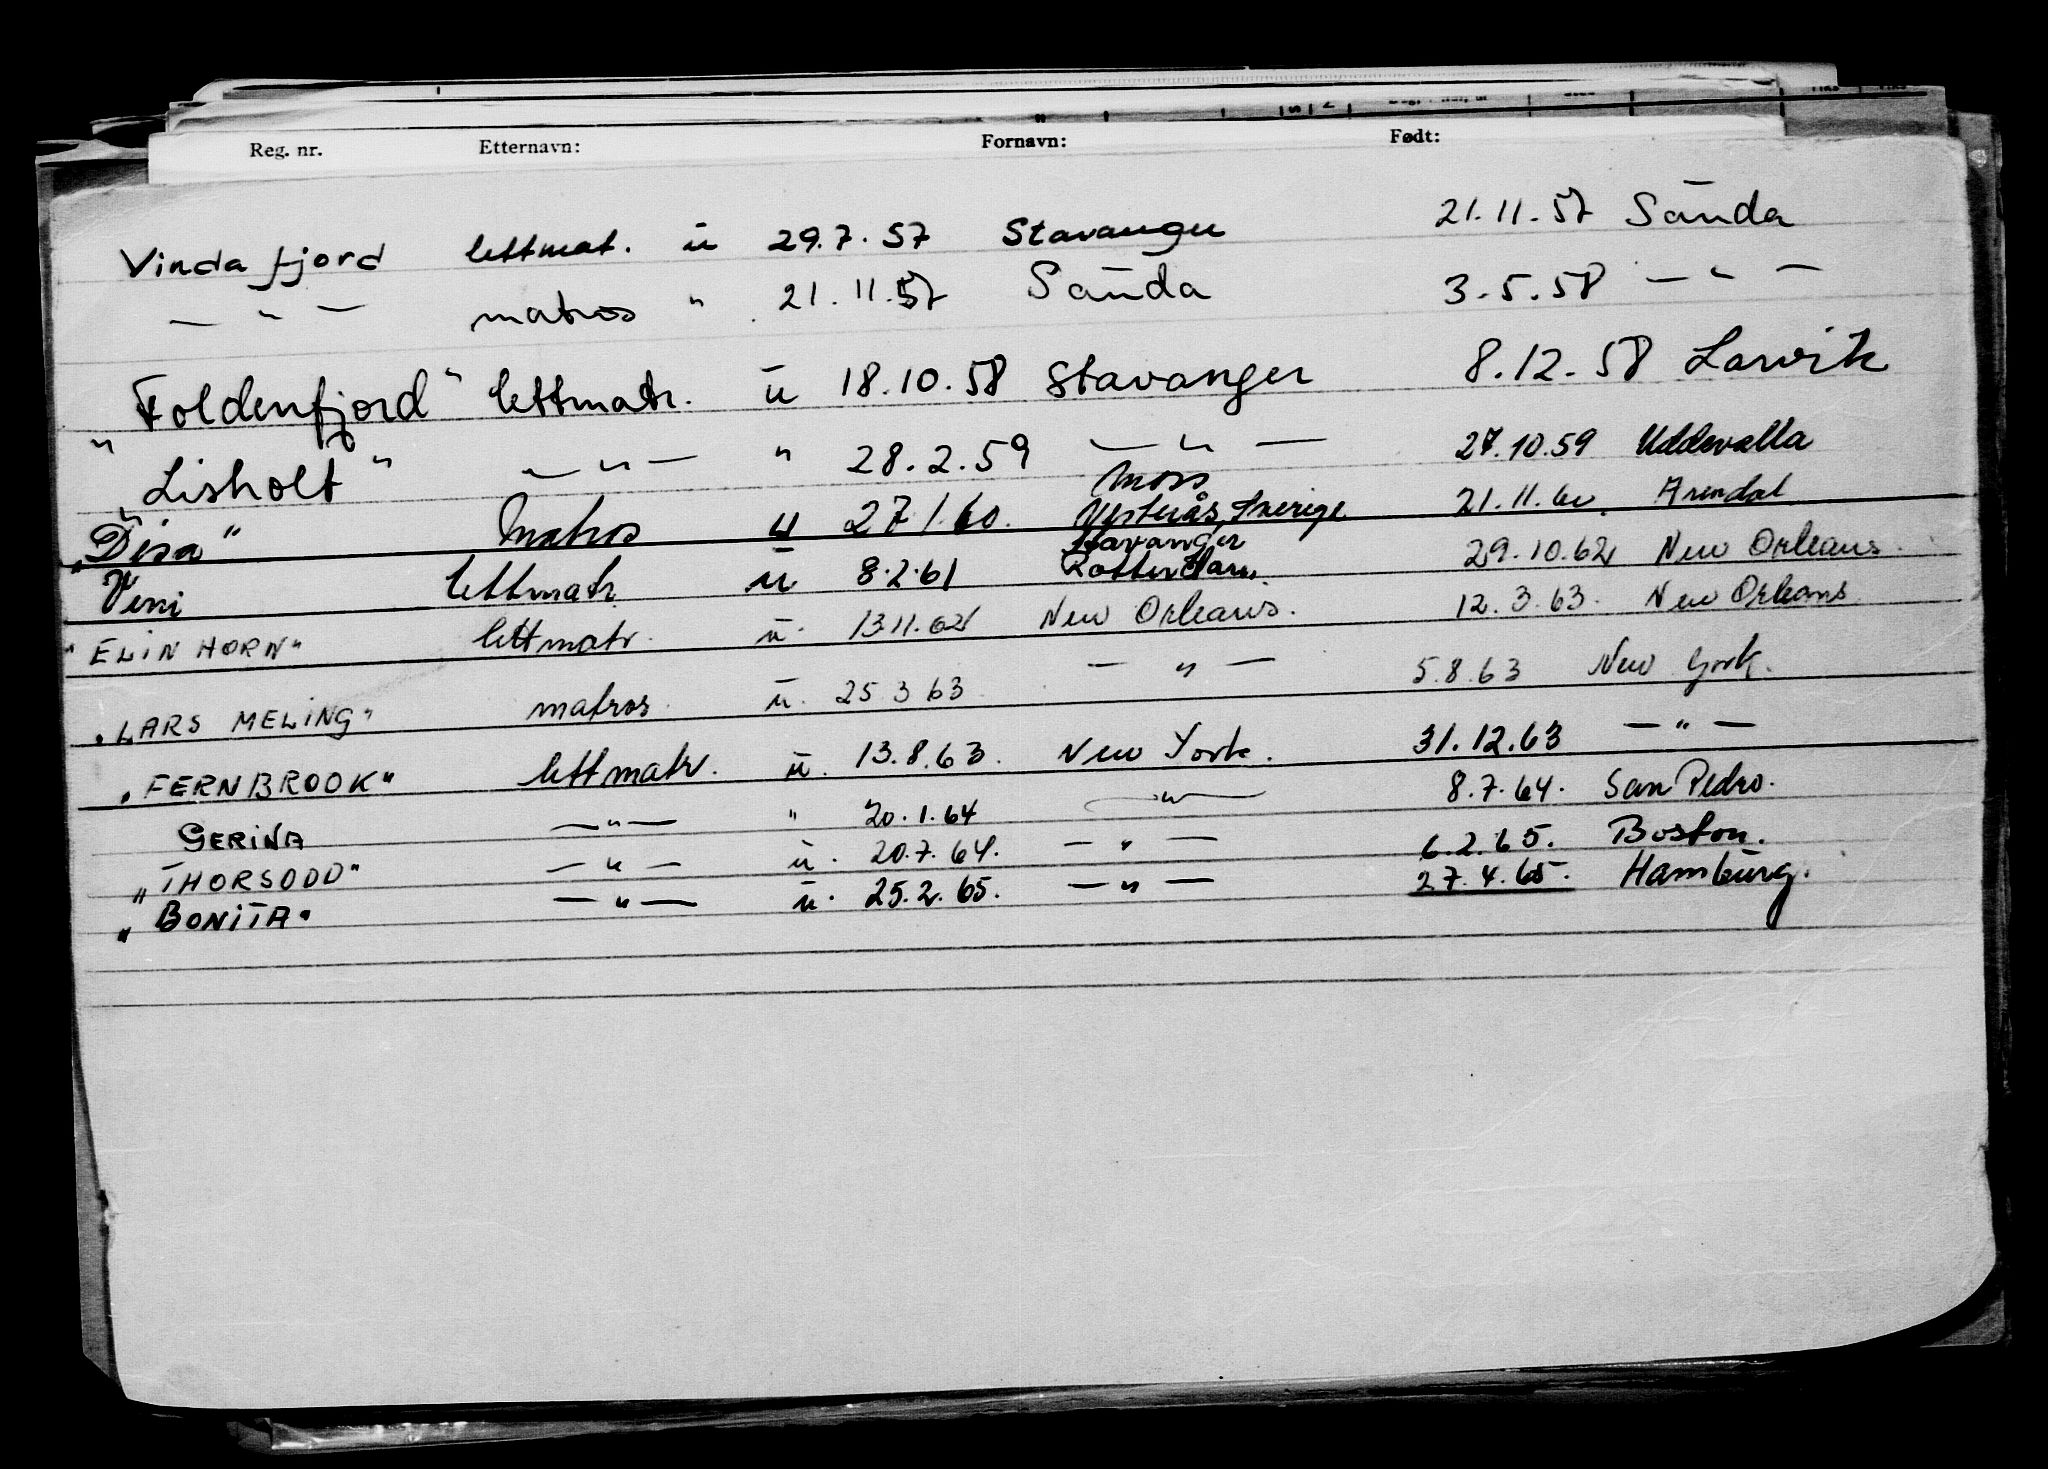 Reg. nr. Etternavn: Fornavn: Født:
Vindafjord lettmat. u 29.7.57 Stavanger 21.11.57 Sauda
— " — matros " 21.11.57 Sauda 3.5.58 — " —
"Foldenfjord" lettmatr. u 18.10.58 Stavanger 8.12.58 Larvik
"Lisholt" — " — " 28.2.59 — " — 27.10.59 Uddevalla
Moss
"Disa" Matros u 27.1.60. Vesterås, Sverige 21.11.60. Arendal
Stavanger
Veni lettmatr u 8.2.61 Rotterdam. 29.10.62 New Orleans.
"ELIN HORN" lettmatr. u. 13.11.62 New Orleans. 12.3.63. New Orleans
"LARS MELING" matros. u. 25.3.63 — " — 5.8.63 New York.
"FERNBROOK" lettmatr. u. 13.8.63. New York. 31.12.63 — " —
GERINA — " — " 20.1.64 — " — 8.7.64. San Pedro.
"THORSODD" — " — u. 20.7.64. — " — 6.2.65. Boston.
"BONITA" — " — u. 25.2.65. — " — 27.4.65. Hamburg.